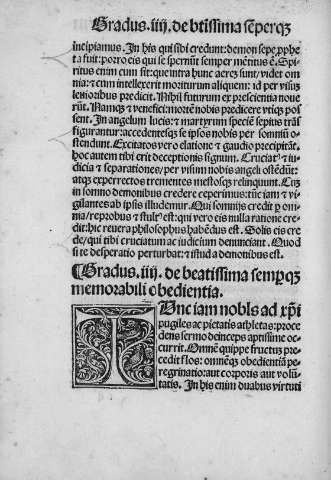 Gradus.iiij. de btissima seperqꝫ
incipiamus. In his qui sibi credunt: demon sepe pphe
ta fuit: porro eis qui se spernũt semper mentitus ẽ. Spi
ritus enim cum sit: que intra hunc aerẽ sunt/ videt om
nia: ⁊ cum intellexerit moriturum aliquem: id per visus
leuioribus predicit. Nihil futurum ex prescientia noue
rũt. Namqꝫ ⁊ venefici: mortẽ nobis predicere vtiqꝫ pos
sent. In angelum lucis: ⁊ martyrum speciẽ sepius trãs
figurantur: accedentesqꝫ se ipsos nobis per somniũ o-
stendunt. Excitatos vero elatione ⁊ gaudio precipitãt.
hoc autem tibi erit deceptionis signum. Cruciatꝰ ⁊ iu-
dicia ⁊ separationes/ per visum nobis angeli ostẽdũt:
atqꝫ experrectos trementes mestosqꝫ relinquunt. Cuꝫ
in somno demonibus credere ceperimus: tũc iam ⁊ vi-
gilantes ab ipsis illudemur. Qui somnijs credit p om
nia/ reprobus ⁊ stultꝰ est: qui vero eis nulla ratione cre
dit: hic reuera philosophus habẽdus est. Solis eis cre
de/ qui tibi cruciatum ac iudicium denunciant. Quod
si te desperatio perturbat: ⁊ istud a demonibus est.
¶ Gradus. iiij. de beatissima sempqꝫ
memorabili obedientia.
Hnc iam nobis ad xp̃i
pugiles ac pietatis athletas: proce
dens sermo deinceps aptissime oc-
currit. Omnẽ quippe fructus pre-
cedit flos: omnẽqꝫ obedientiã pe-
regrinatio: aut corporis aut volũ-
tatis. In his enim duabus virtuti